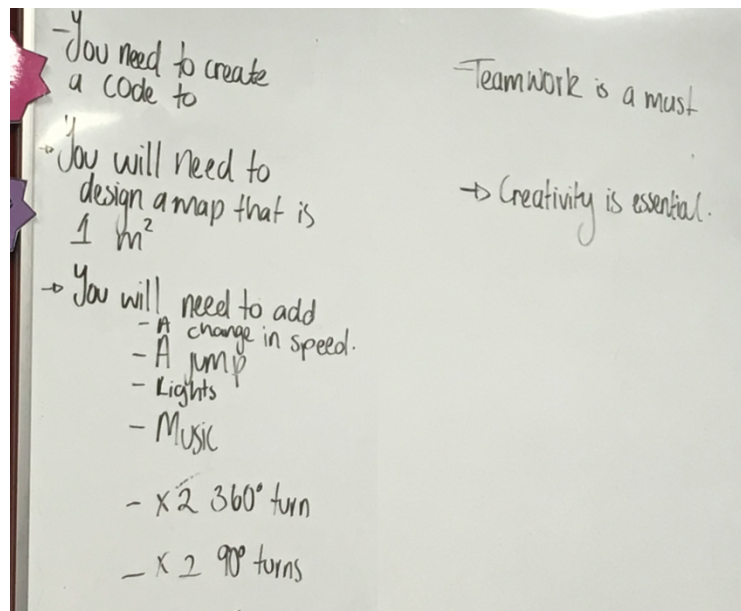 -You need to create
a code to
→ You will need to
design a map that is
1 m²
→ You will need to add
- A change in speed.
- A jump
- Lights
- Music
- x2 360° turn
- x 2 90° turns
- Teamwork is a must
→ Creativity is essential.